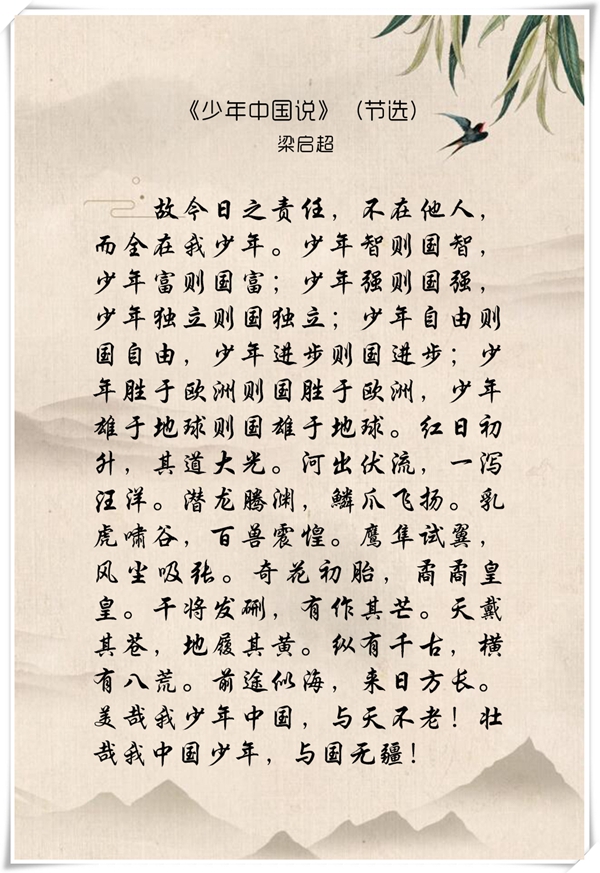 《少年中国说》（节选）
梁启超
故今日之责任，不在他人，
而全在我少年。少年智则国智，
少年富则国富；少年强则国强，
少年独立则国独立；少年自由则
国自由，少年进步则国进步；少
年胜于欧洲则国胜于欧洲，少年
雄于地球则国雄于地球。红日初
升，其道大光。河出伏流，一泻
汪洋。潜龙腾渊，鳞爪飞扬。乳
虎啸谷，百兽震惶。鹰隼试翼，
风尘吸张。奇花初胎，矞矞皇
皇。干将发硎，有作其芒。天戴
其苍，地履其黄。纵有千古，横
有八荒。前途似海，来日方长。
美哉我少年中国，与天不老！壮
哉我中国少年，与国无疆！